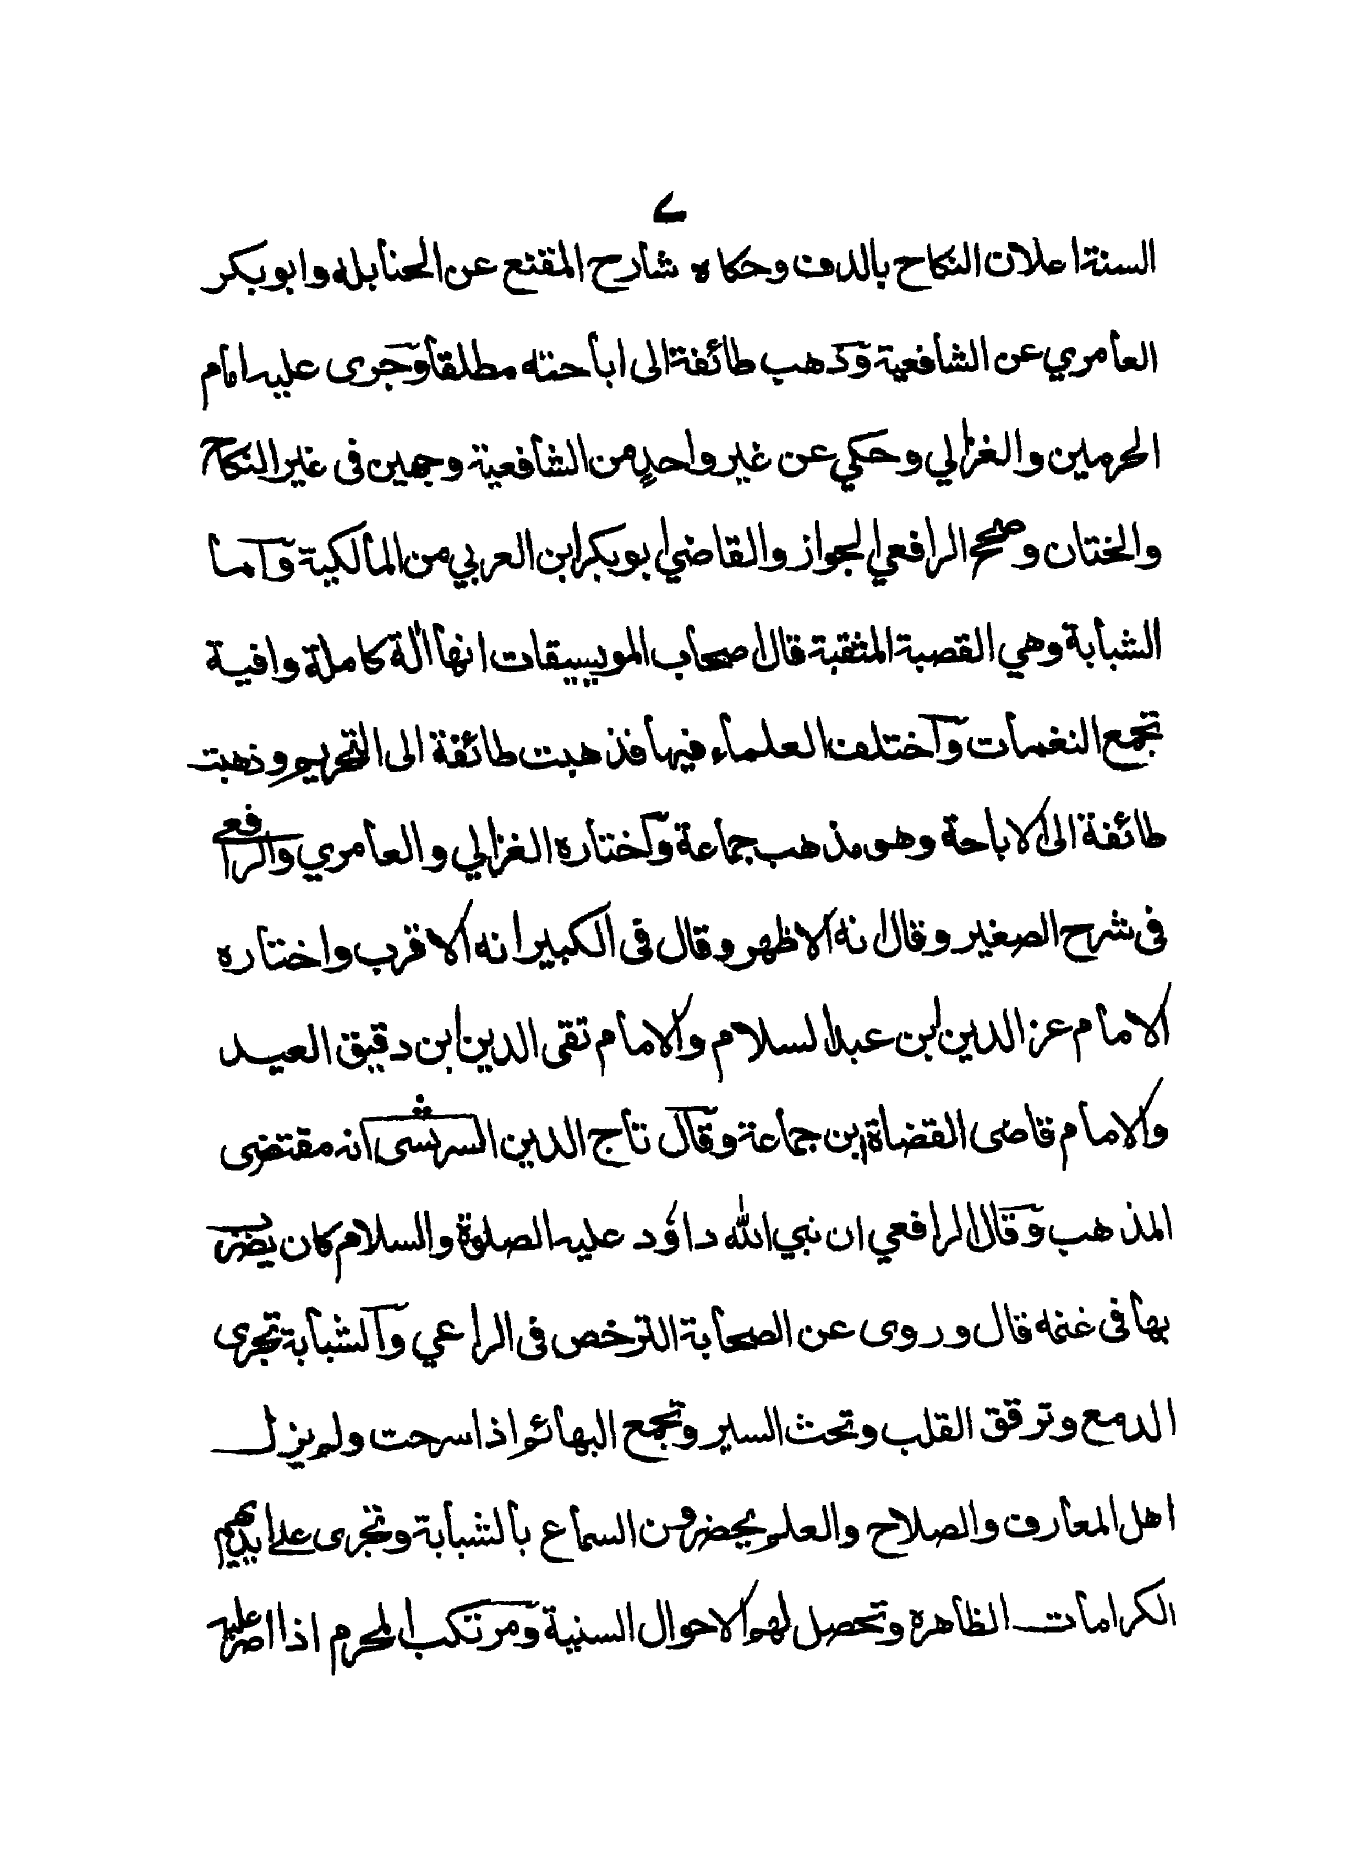 ٧
السنة اعلان النكاح بالدف وحكاه شارح المقنع عن الحنابله وابوبكر
العامري عن الشافعية وذهب طائفة الى اباحته مطلقا وجرى عليه امام
الحرمين والغزالي وحكي عن غير واحد من الشافعية وجهين فى غير النكاح
والختان وصحح الرافعي الجواز والقاضي ابوبكر ابن العربي من المالكية واما
الشبابة وهي القصبة المثقبة قال اصحاب الموسيقات انها الة كاملة وافية
تجمع النغمات واختلف العلماء فيها فذهبت طائفة الى التحريم وذهبت
طائفة الى الاباحة وهو مذهب جماعة واختاره الغزالي والعامري والرافعي
فى شرح الصغير وقال انه الاظهر وقال فى الكبير انه الاقرب واختاره
الامام عز الدين ابن عبد السلام والامام تقى الدين ابن دقيق العيد
والامام قاضى القضاة ابن جماعة وقال تاج الدين السرشى انه مقتضى
المذهب وقال الرافعي ان نبي الله داؤد عليه الصلوة والسلام كان يضرب
بها فى غنمه قال وروى عن الصحابة الترخص فى الراعي والشبابة تجرى
الدمع وترقق القلب وتحث السير وتجمع البهائم اذا سرحت ولم يزل
اهل المعارف والصلاح والعلم يحضرون السماع بالشبابة وتجرى على ايديهم
الكرامات الظاهرة وتحصل لهم الاحوال السنية ومرتكب المحرم اذا اصر عليه